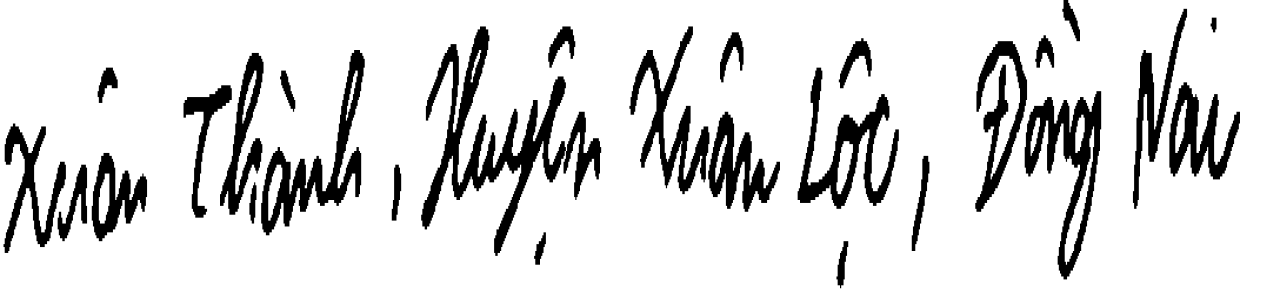 Xuân Thành, Huyện Xuân Lộc, Đồng Nai